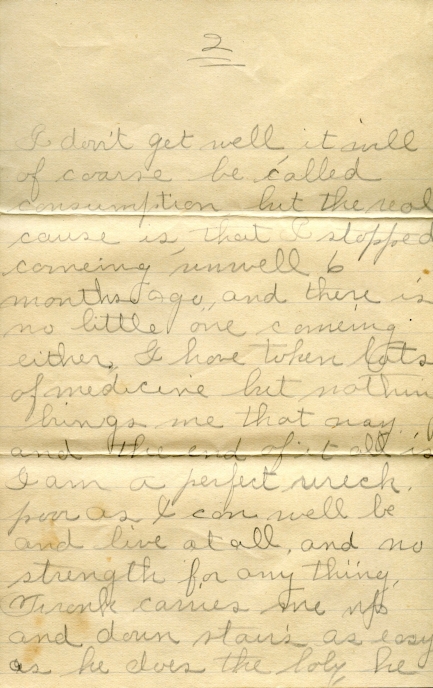 2
I don't get well it will
of coarse be called
consumption but the real
cause is that I stopped
comeing "unwell 6
months ago", and there is
no little one comeing
either, I have token lots
of medicine but nothin
brings me that way.
and the end of it all is
I am a perfect wreck.
poor as I can well be
and live at all, and no
strength for any thing,
Frank carries me up
and down stairs as easy
as he does the baby, he